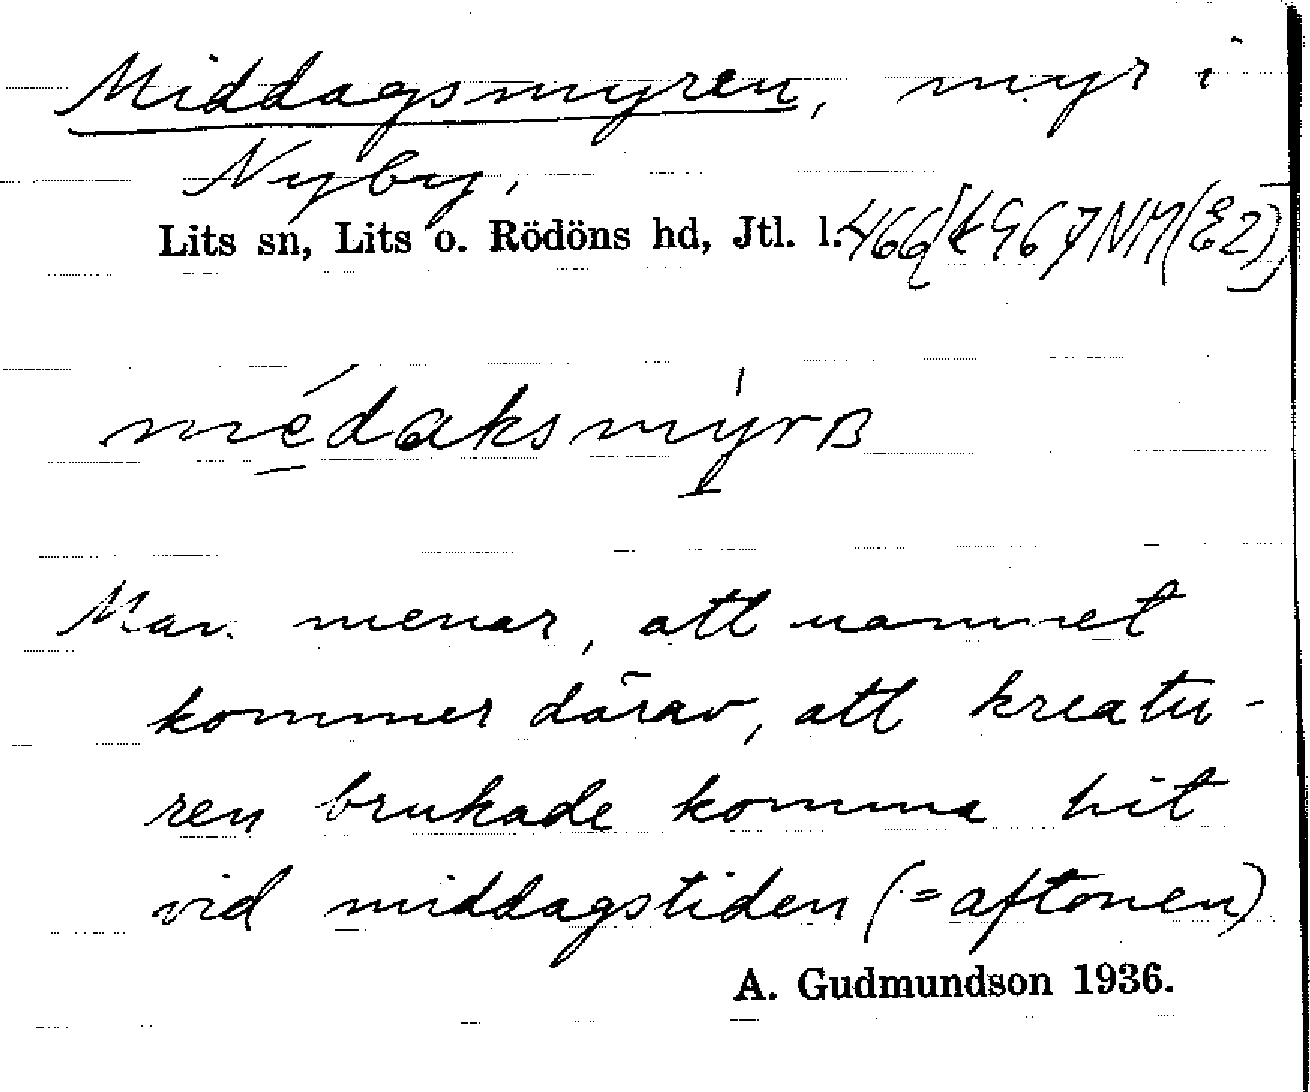 Middagsmyren, myr i
Nyby.
Lits sn, Lits o. Rödöns hd, Jtl. l.
médaksmýrʙ
Man menar, att namnet
kommer därav, att kreatu-
ren brukade komma hit
vid middagstiden (=aftonen)
A. Gudmundson 1936.